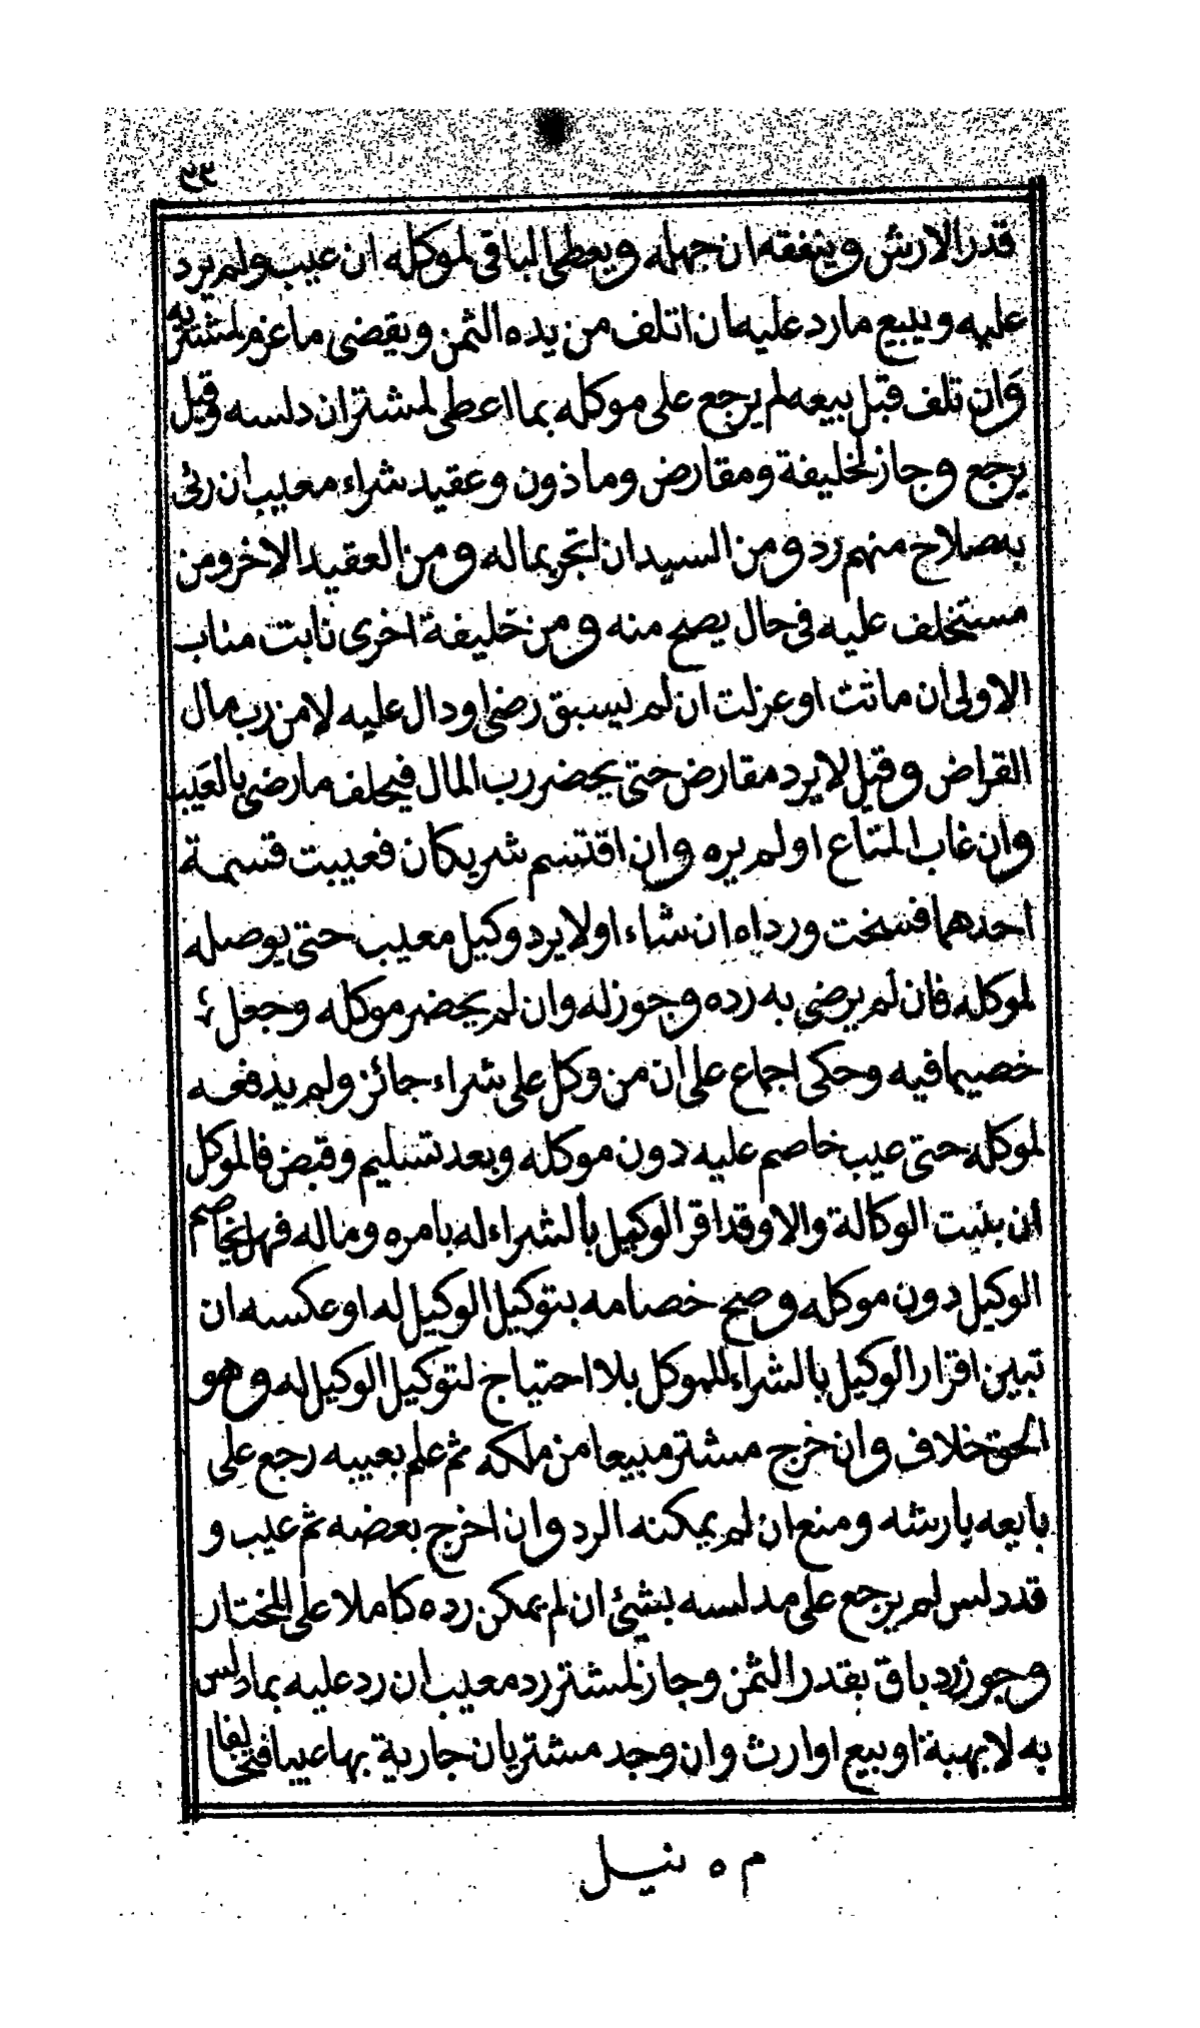 ٣٣
قدر الارش وينفقه ان جهله ويعطى الباقى لموكله ان عيب ولم يرد
عليه ويبيع ما رد عليه ان اتلف من يده الثمن ويقضى ما غرم لمشتريه
وان تلف قبل بيعه لم يرجع على موكله بما اعطى لمشتر ان دلسه وقيل
يرجع وجاز لخليفة ومقارض وماذون وعقيد شراء معيب ان رئى
به صلاح منهم رد ومن السيد ان اتجر بماله ومن العقيد الاخر ومن
مستخلف عليه فى حال يصح منه ومن خليفة اخرى نابت مناب
الاولى ان ماتت او عزلت ان لم يسبق رضى او دال عليه لا من رب مال
القراض وقيل لا يرد مقارض حتى يحضر رب المال فيحلف ما رضى بالعيب
وان غاب المتاع او لم يره وان اقتسم شريكان فعيبت قسمة
احدهما فسخت ورداه ان شاء او لا يرد وكيل معيب حتى يوصله
لموكله فان لم يرضى به رده وجوز له وان لم يحضر موكله وجعل
خصيما فيه وحكى اجماع على ان من وكل على شراء جائز ولم يدفعه
لموكله حتى عيب خاصم عليه دون موكله وبعد تسليم وقبض فالموكل
ان بنيت الوكالة والا وقد اقر الوكيل بالشراء له بامره وماله فهل يخاصم
الوكيل دون موكله وصح خصامه بتوكيل الوكيل له او عكسه ان
تبين اقرار الوكيل بالشراء للموكل بلا احتياج لتوكيل الوكيل له وهو
الحق خلاف وان خرج مشتر مبيعا من ملكه ثم علم بعيبه رجع على
بايعه بارشه ومنع ان لم يمكنه الرد وان اخرج بعضه ثم عيب و
قد دلس لم يرجع على مدلسه بشئ ان لم يمكن رده كاملا على المختار
وجوز رد باق بقدر الثمن وجاز لمشتر رد معيب ان رد عليه بما دلس
به لا بهبة او بيع او ارث وان وجد مشتريان جارية بها عيبا فتخالفا
م ٥ نيل